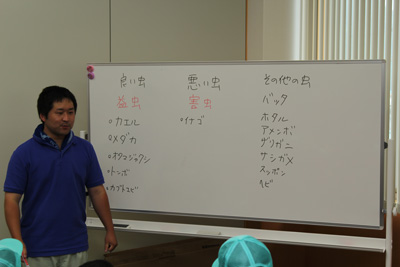 良い虫
益虫
・カエル
・メダカ
・オタマジャクシ
・トンボ
・カブトエビ
悪い虫
害虫
・イナゴ
その他の虫
バッタ
ホタル
アメンボ
ザリガニ
サシガメ
スッポン
ヘビ